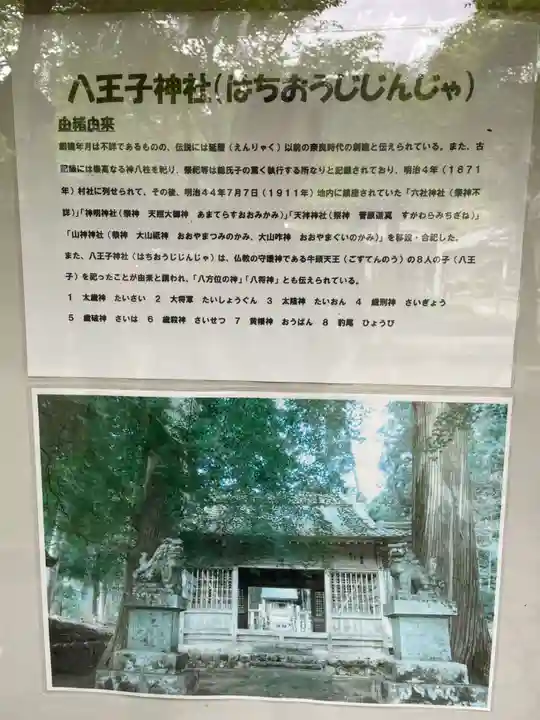 八王子神社(はちおうじじんじゃ)
由緒由来
創建年月は不詳であるものの、伝説には延暦(えんりゃく)以前の奈良時代の創建と伝えられている。また、古
記録には崇高なる神八柱を祀り、祭祀等は総氏子の篤く執行する所なりと記録されており、明治4年(1871
年)村社に列せられて、その後、明治44年7月7日(1911年)地内に鎮座されていた「六社神社(祭神不
詳)」「神明神社(祭神 天照大御神 あまてらすおおみかみ)」「天神神社(祭神 菅原道真 すがわらみちざね)」
「山神神社(祭神 大山祇神 おおやまつみのかみ、大山咋神 おおやまぐいのかみ)」を移設・合祀した。
また、八王子神社(はちおうじじんじゃ)は、仏教の守護神である牛頭天王(ごずてんのう)の8人の子(八王
子)を祀ったことが由来と謂われ、「八方位の神」「八将神」とも伝えられている。
1 太歳神 たいさい 2 大将軍 たいしょうぐん 3 太陰神 たいおん 4 歳刑神 さいぎょう
5 歳破神 さいは 6 歳殺神 さいせつ 7 黄幡神 おうばん 8 豹尾 ひょうび